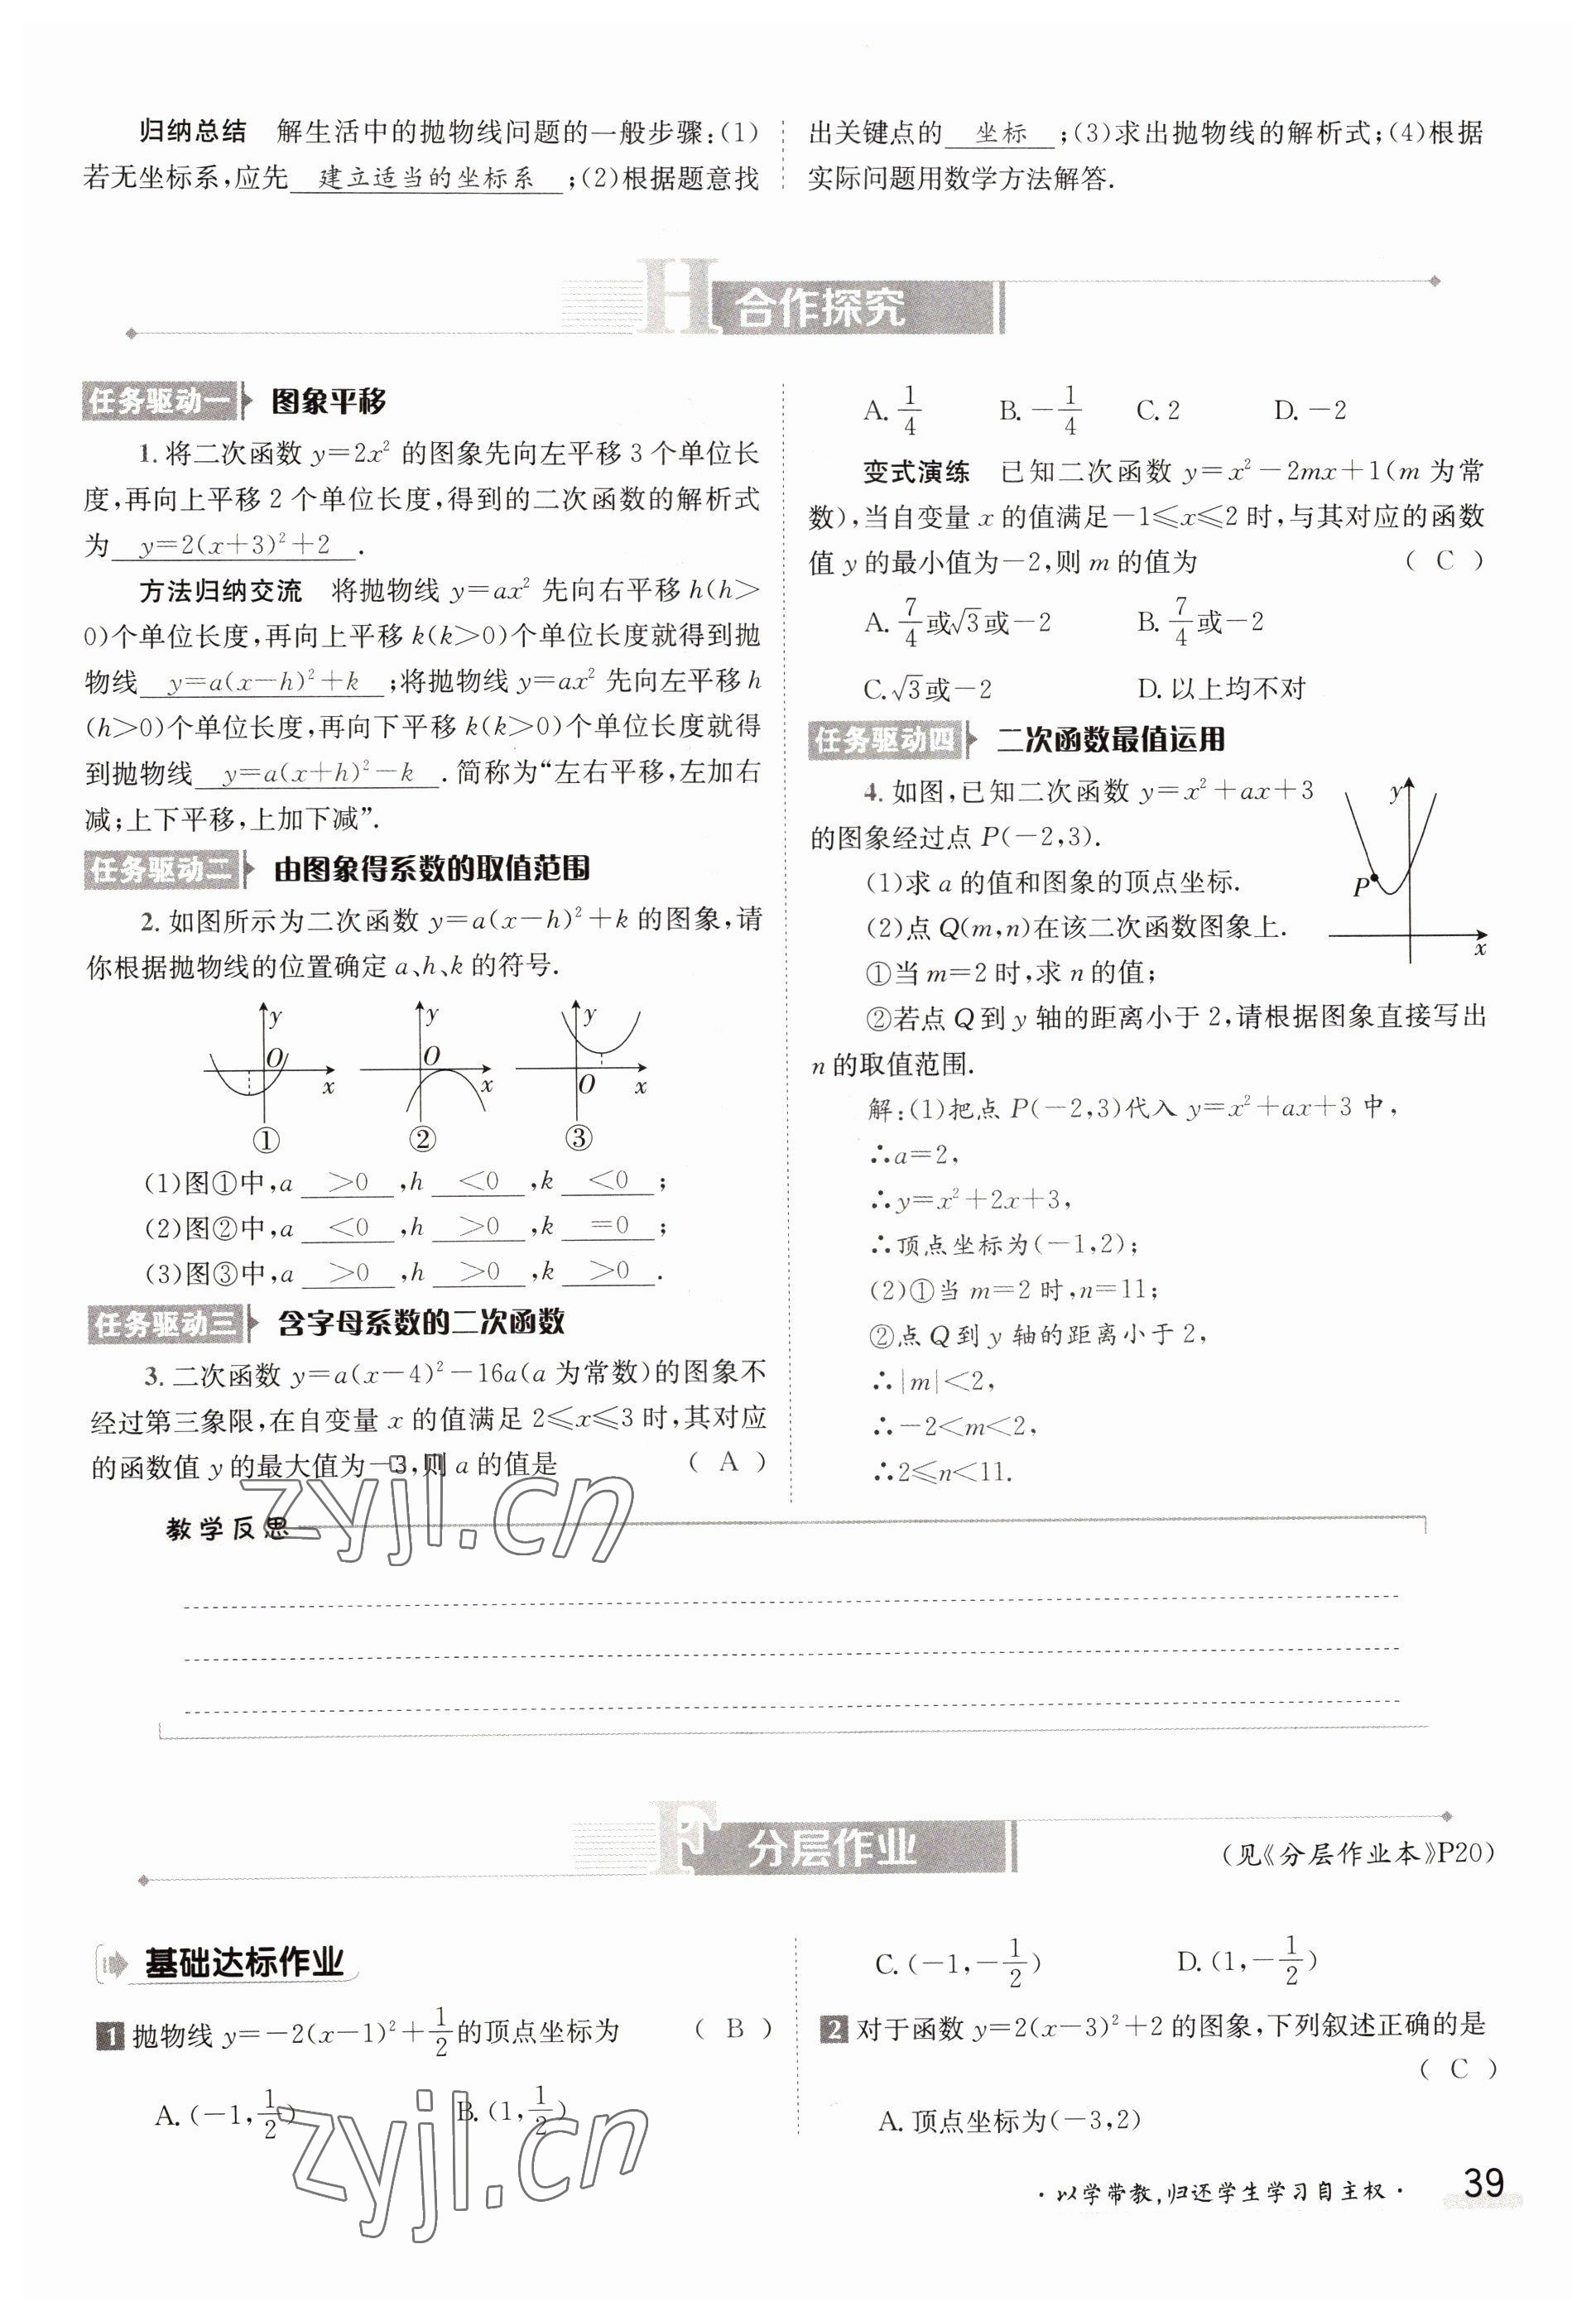 归纳总结 解生活中的抛物线问题的一般步骤:(1)
若无坐标系,应先 建立适当的坐标系 ;(2)根据题意找
出关键点的 坐标 ;(3)求出抛物线的解析式;(4)根据
实际问题用数学方法解答.
H 合作探究
任务驱动一 图象平移
1. 将二次函数 y=2x² 的图象先向左平移 3 个单位长
度,再向上平移 2 个单位长度,得到的二次函数的解析式
为 y=2(x+3)²+2 .
方法归纳交流 将抛物线 y=ax² 先向右平移 h(h>
0)个单位长度,再向上平移 k(k>0)个单位长度就得到抛
物线 y=a(x-h)²+k ;将抛物线 y=ax² 先向左平移 h
(h>0)个单位长度,再向下平移 k(k>0)个单位长度就得
到抛物线 y=a(x+h)²-k .简称为“左右平移,左加右
减;上下平移,上加下减”.
任务驱动二 由图象得系数的取值范围
2. 如图所示为二次函数 y=a(x-h)²+k 的图象,请
你根据抛物线的位置确定 a、h、k 的符号.
y O x ①
y O x ②
y O x ③
(1)图①中,a >0 ,h <0 ,k <0 ;
(2)图②中,a <0 ,h >0 ,k =0 ;
(3)图③中,a >0 ,h >0 ,k >0 .
任务驱动三 含字母系数的二次函数
3. 二次函数 y=a(x-4)²-16a(a 为常数)的图象不
经过第三象限,在自变量 x 的值满足 2≤x≤3 时,其对应
的函数值 y 的最大值为-3,则 a 的值是 ( A )
A. 1/4 B. -1/4 C. 2 D. -2
变式演练 已知二次函数 y=x²-2mx+1(m 为常
数),当自变量 x 的值满足-1≤x≤2 时,与其对应的函数
值 y 的最小值为-2,则 m 的值为 ( C )
A. 7/4或√3或-2 B. 7/4或-2
C. √3或-2 D. 以上均不对
任务驱动四 二次函数最值运用
4. 如图,已知二次函数 y=x²+ax+3
的图象经过点 P(-2,3).
(1)求 a 的值和图象的顶点坐标.
(2)点 Q(m,n)在该二次函数图象上.
①当 m=2 时,求 n 的值;
②若点 Q 到 y 轴的距离小于 2,请根据图象直接写出
n 的取值范围.
y P x
解:(1)把点 P(-2,3)代入 y=x²+ax+3 中,
∴a=2,
∴y=x²+2x+3,
∴顶点坐标为(-1,2);
(2)①当 m=2 时,n=11;
②点 Q 到 y 轴的距离小于 2,
∴|m|<2,
∴-2<m<2,
∴2≤n<11.
教学反思
zyjl.cn
F 分层作业
(见《分层作业本》P20)
基础达标作业
1 抛物线 y=-2(x-1)²+1/2的顶点坐标为 ( B )
A. (-1,1/2) B. (1,1/2)
C. (-1,-1/2) D. (1,-1/2)
2 对于函数 y=2(x-3)²+2 的图象,下列叙述正确的是
( C )
A. 顶点坐标为(-3,2)
zyjl.cn
· 以学带教,归还学生学习自主权 · 39